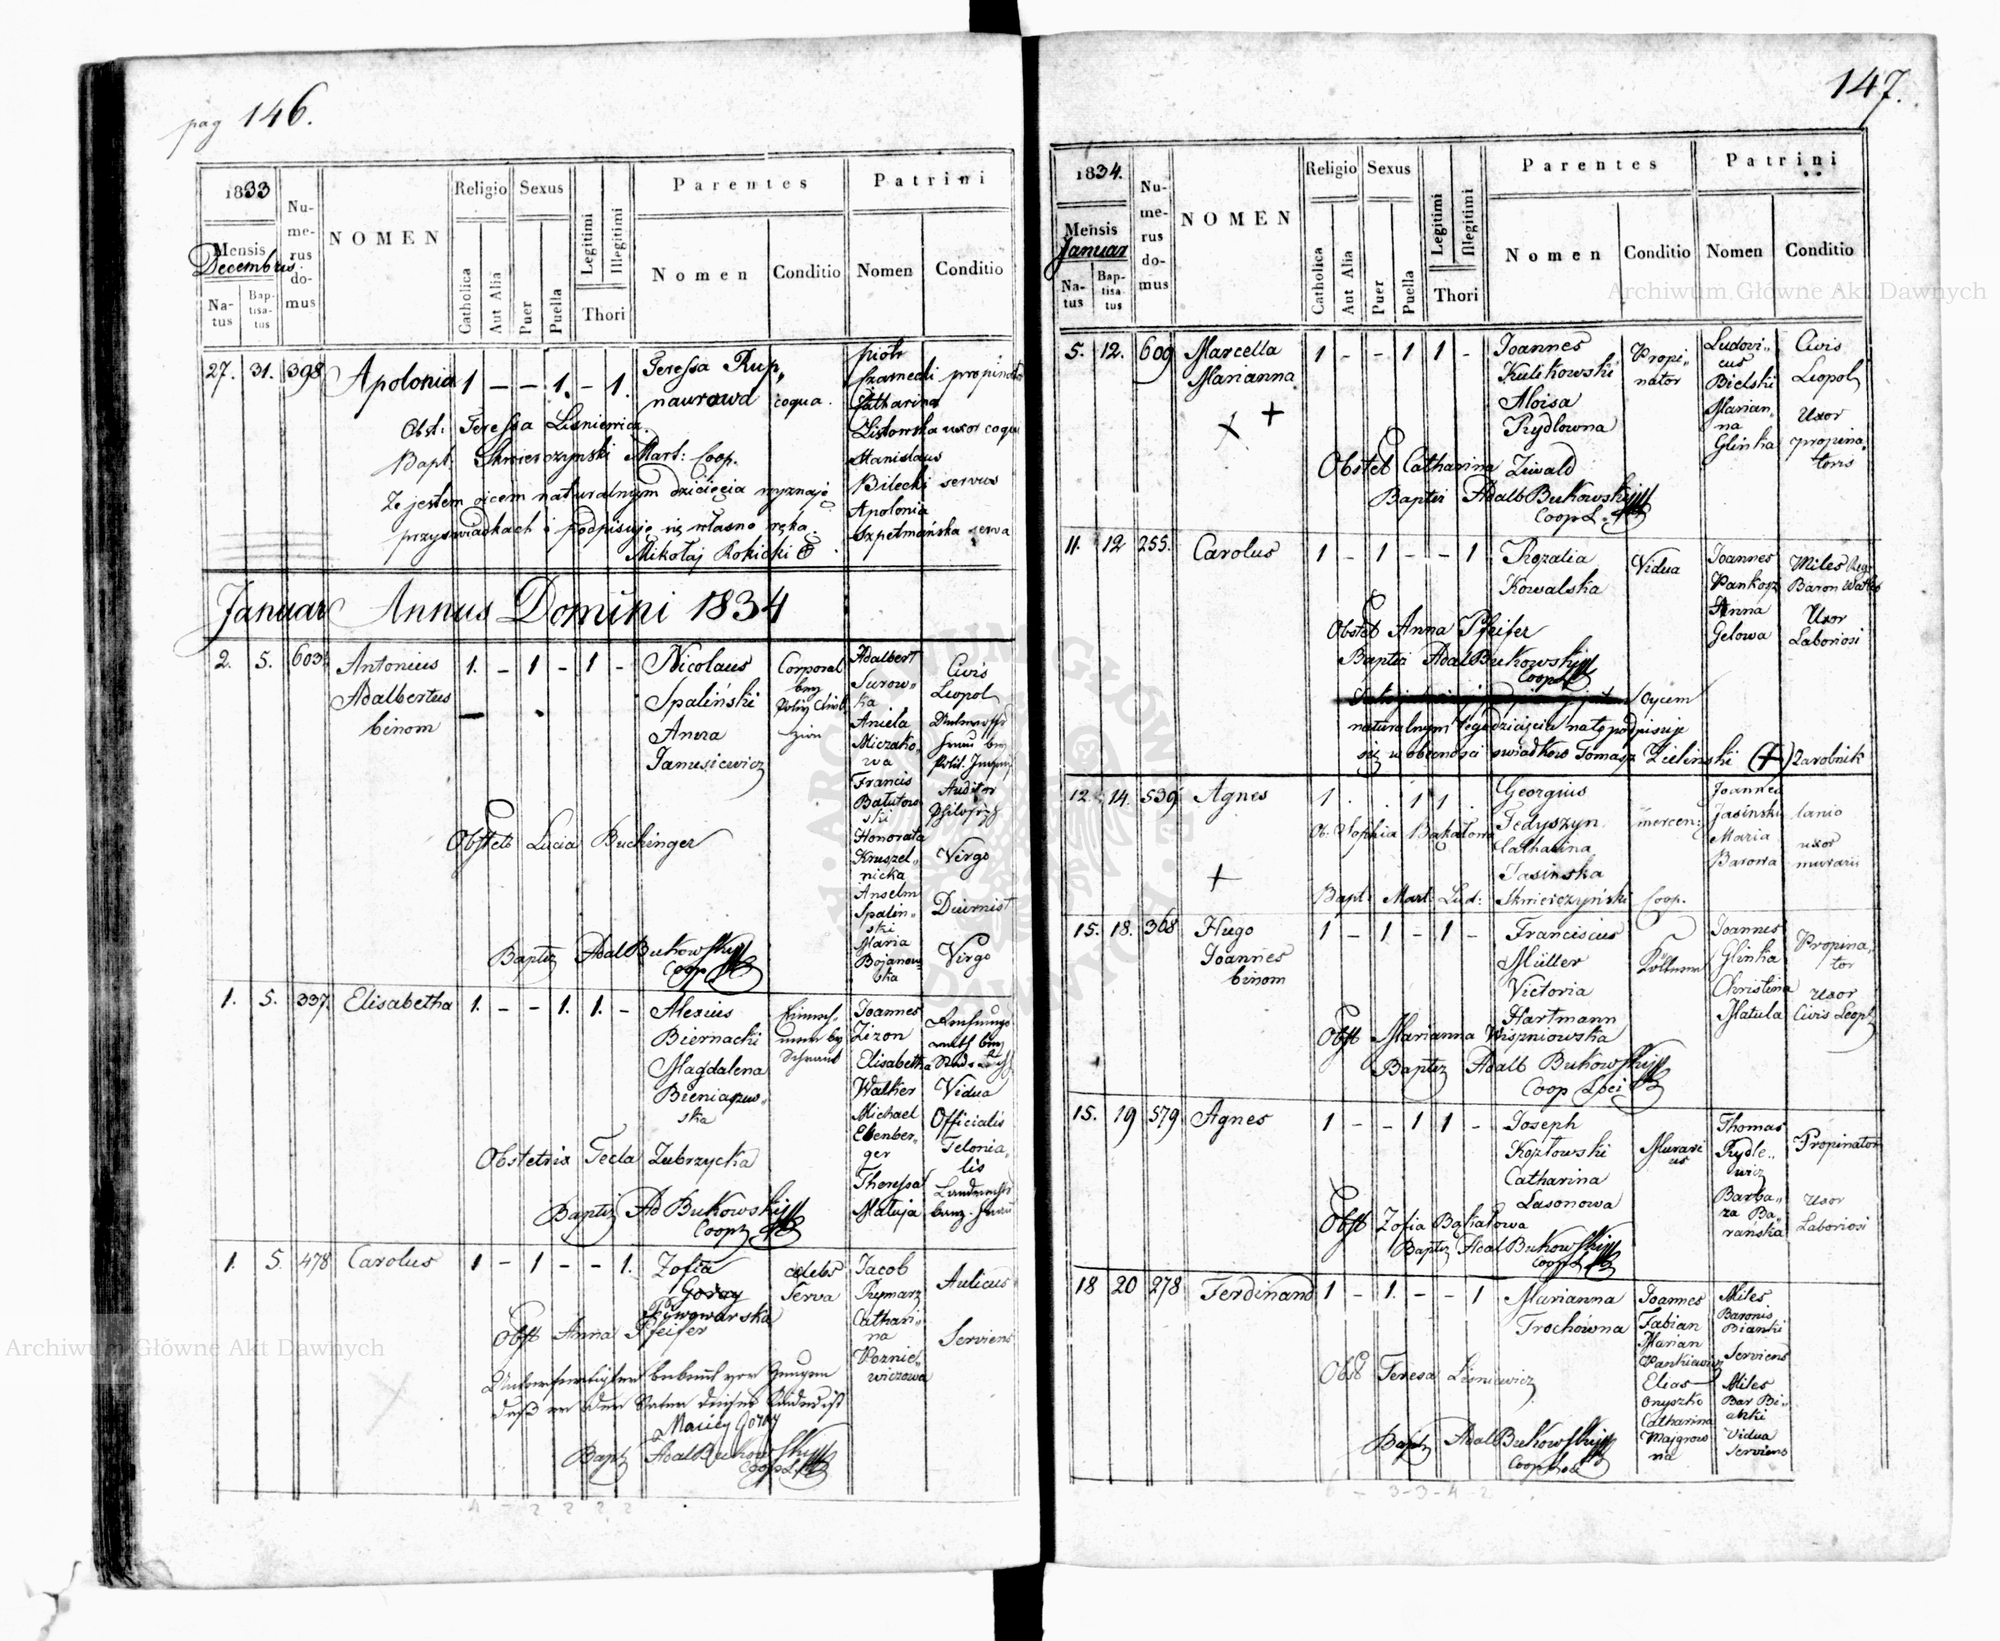 pag 146.
1833
Mensis
Decembris
Natus
Baptisatus
Numerus domus
NOMEN
Religio
Catholica
Aut Alia
Sexus
Puer
Puella
Legitimi
Illegitimi
Thori
Parentes
Nomen
Conditio
Patrini
Nomen
Conditio
27. 31. 398 Apolonia 1 - - 1. - 1.
Teressa Rup,,
naurowa coqua.
Piotr
Czarnecki propinator
Catharina
Listowska uxor coqui
Stanislaus
Bilecki servus
Apolonia
Szpetmańska serva
Obst: Teressa Lisniewicz
Bapt: Skwierczynski Mart: Coop.
Że jestem oicem naturalnym dziecięcia wyznaję
przy swiadkach i podpisuję się własno ręką.
Mikołaj Rokicki
Januar Annus Domini 1834
2. 5. 603 Antonius 1. - 1 - 1 -
Adalbertus
binom
Nicolaus
Spaliński
Anna
Janusiewicz
Corporal
bey
Adalbert
Surow-
ka
Aniela
Miczako-
wa
Francis
Batutow-
ski
Honorata
Kruszel-
nicka
Anselm
Spalin-
ski
Maria
Bojanow-
ska
Civis
Leopol
Auditor
Virgo
Diurnist
Virgo
Obstet Lucia Buchinger
Baptiz Adal Bukowski
Coop
1. 5. 337. Elisabetha 1. - - 1. 1. -
Alexius
Biernacki
Magdalena
Bieniaszew-
ska
Joannes
Zizon
Elisabetha
Walker
Michael
Ebenber-
ger
Theressa
Matuja
Vidua
Officialis
Telonia-
lis
Obstetrix Tecla Zubrzycka
Baptiz Ad Bukowski
Coop
1. 5. 478 Carolus 1 - 1 - - 1.
Zofia
Piwowarska
celebs
Serva
Jacob
Rymarz
Cathari-
na
Woznie-
wiczowa
Aulicus
Serviens
Obst Anna Pfeifer
Maciey Gorny
Bapt Adal Bukowski
Coop L.
147.
1834.
Mensis
Januar
Natus
Baptisatus
Numerus domus
NOMEN
Religio
Catholica
Aut Alia
Sexus
Puer
Puella
Legitimi
Illegitimi
Thori
Parentes
Nomen
Conditio
Patrini
Nomen
Conditio
5. 12. 609 Marcella 1 - - 1 1 -
Marianna
Joannes
Kulikowski
Aloisa
Rydlowna
Propi-
nator
Ludovi-
cus
Bielski
Marian-
na
Glinka
Civis
Leopol
Uxor
propina-
toris
Obstet Catharina Ziwald
Baptiz Adalb Bukowski
Coop L.
11. 12 255. Carolus 1 - 1 - - 1
Rozalia
Kowalska
Vidua
Joannes
Pankosz
Anna
Gelowa
Miles Reg
Baron
Uxor
Laboriosi
Obstet Anna Pfeifer
Baptiz Adal Bukowski
Coop L
Oycem
naturalnym tego dziecięcia na to podpisuje
się w obecnosci swiadkow Tomasz Zieliński (+) Zarobnik
12. 14. 539 Agnes 1 . . 1 1 .
Georgius
Fedyszyn
Catharina
Jasinska
mercen:
Joannes
Jasinski
Maria
Barowa
lanio
uxor
murarii
Ob: Sophia Bakałowa
Bapt: Mart: Lud: Skwierczyński Coop.
15. 18. 368 Hugo 1 - 1 - 1 -
Joannes
binom
Franciscus
Müller
Victoria
Hartmann
Joannes
Glinka
Christina
Matula
Propina-
tor
uxor
Civis Leopl
Obst Marianna Wispniowska
Baptiz Adalb Bukowski
Coop Loci
15. 19 579 Agnes 1 - - 1 1 -
Joseph
Kozłowski
Catharina
Lasonowa
Murari-
us
Thomas
Rydle-
wicz
Barba-
ra Ba-
rańska
Propinator
uxor
Laboriosi
Obst Zofia Bakałowa
Baptiz Adal Bukowski
Coop L
18 20 278 Ferdinand 1 - 1. - - 1
Marianna
Trochówna
Joannes
Fabian
Marian
Pankiewicz
Elias
Onyszko
Catharina
Majgrow-
na
Miles
Baronis
Bianki
Serviens
Miles
Bar Bi-
anki
Vidua
Serviens
Obst Teresa Lisniewicz
Bapt Adal Bukowski
Coop Loci
Archiwum Główne Akt Dawnych
Archiwum Główne Akt Dawnych